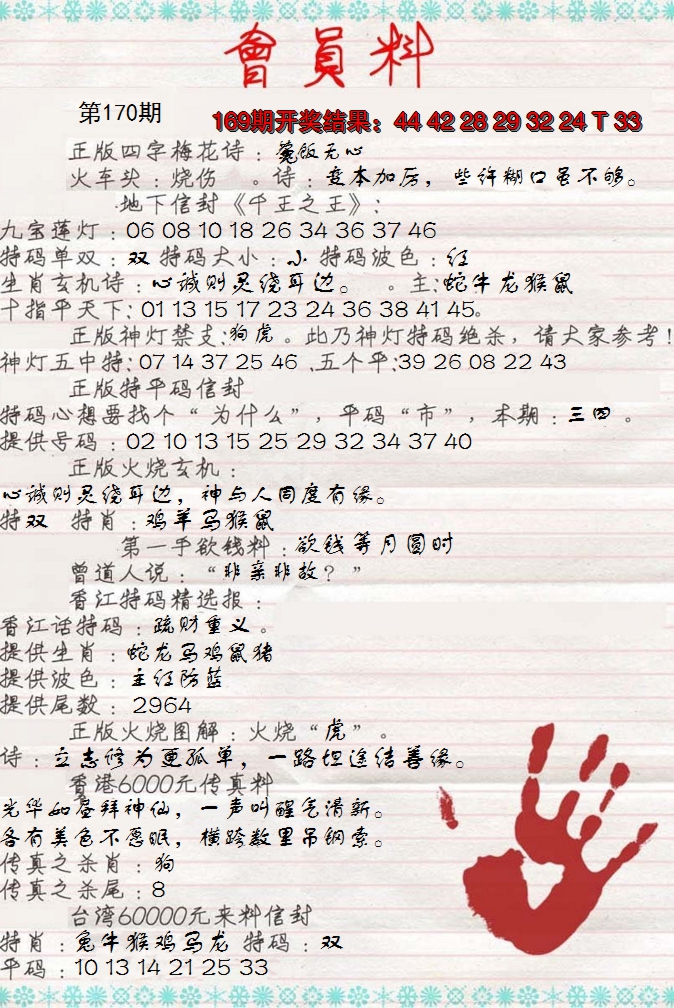 會員料
第170期
169期开奖结果：44 42 28 29 32 24 T 33
正版四字梅花诗：籠饭无心
火车头：烧伤 。诗：变本加厉，些许糊口虽不够。
地下信封《千王之王》：
九宝莲灯：06 08 10 18 26 34 36 37 46
特码单双：双 特码大小：小 特码波色：红
生肖玄机诗：心诚则灵绕耳边。 。主：蛇牛龙猴鼠
十指平天下：01 13 15 17 23 24 36 38 41 45。
正版神灯禁支：狗虎。此乃神灯特码绝杀，请大家参考！
神灯五中特：07 14 37 25 46 、五个平：39 26 08 22 43
正版特平码信封
特码心想要找个“为什么”，平码“市”，本期：三四。
提供号码：02 10 13 15 25 29 32 34 37 40
正版火烧玄机：
心诚则灵绕耳边，神与人间度有缘。
特双 特肖：鸡羊马猴鼠
第一手欲钱料：欲钱等月圆时
曾道人说：“非亲非故？”
香江特码精选报：
香江话特码：疏财重义。
提供生肖：蛇龙马鸡鼠猪
提供波色：主红防蓝
提供尾数：2964
正版火烧图解：火烧“虎”。
诗：立志修为更孤单，一路坦途结善缘。
香港6000元传真料
光华如昼拜神仙，一声叫醒气清新。
各有美色不愿眠，横跨数里吊钢索。
传真之杀肖：狗
传真之杀尾：8
台湾60000元来料信封
特肖：兔牛猴鸡马龙 特码：双
平码：10 13 14 21 25 33